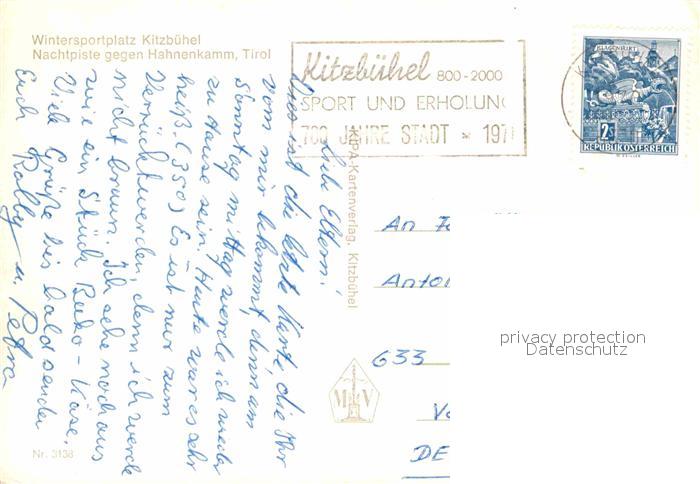 Wintersportplatz Kitzbühel
Nachtpiste gegen Hahnenkamm, Tirol
Kitzbühel 800-2000
SPORT UND ERHOLUNG
700 JAHRE STADT * 1971
KLAGENFURT
2 S
REPUBLIK ÖSTERREICH
Liebe Eltern!
Dies ist die letzte Karte, die Ihr
von mir bekommt, denn am
Sonntag mittag werde ich wieder
zu Hause sein. Heute war es sehr
heiß. (35°) Es ist nur zum
Verrücktwerden, denn ich werde
nicht braun. Ich sehe noch aus
wie ein Stück Käse.
Viele Grüße bis bald sendet
Euch u. Petra
-Kartenverlag, Kitzbühel
An
Anton
633
M V
DE
Nr. 3138
privacy protection
Datenschutz